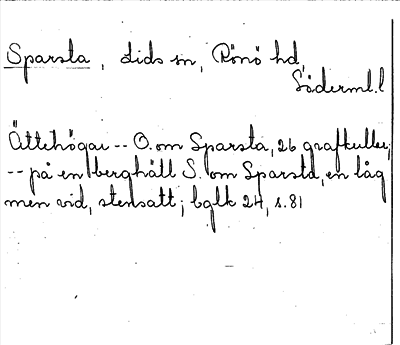 Sparsta, Lids sn, Rönö hd,
Söderml.l
Ättehögar -- O. om Sparsta, 26 grafkullar;
-- på en berghäll S. om Sparsta, en låg
men vid, stensatt; bglk 24, s. 81